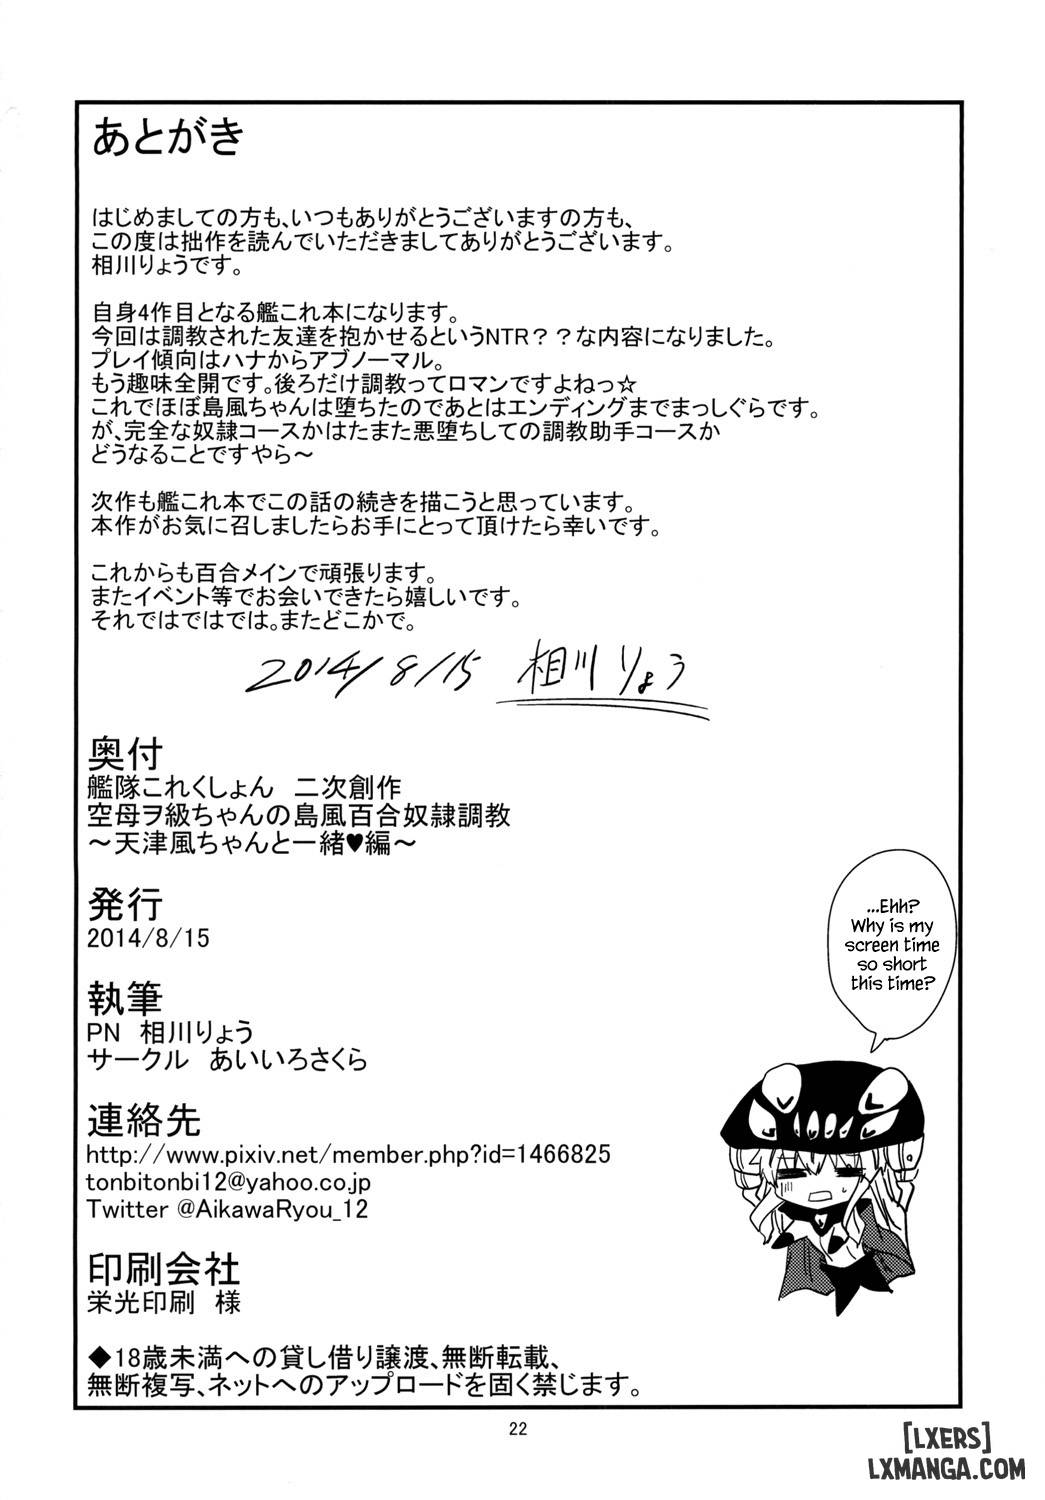 あとがき
はじめましての方も、いつもありがとうございますの方も、
この度は拙作を読んでいただきましてありがとうございます。
相川りょうです。
自身4作目となる艦これ本になります。
今回は調教された友達を抱かせるというNTR？？な内容になりました。
プレイ傾向はハナからアブノーマル。
もう趣味全開です。後ろだけ調教ってロマンですよねっ☆
これでほぼ島風ちゃんは堕ちたのであとはエンディングまでまっしぐらです。
が、完全な奴隷コースかはたまた悪堕ちしての調教助手コースか
どうなることですやら～
次作も艦これ本でこの話の続きを描こうと思っています。
本作がお気に召しましたらお手にとって頂けたら幸いです。
これからも百合メインで頑張ります。
またイベント等でお会いできたら嬉しいです。
それではではでは。またどこかで。
2014/8/15 相川りょう
奥付
艦隊これくしょん 二次創作
空母ヲ級ちゃんの島風百合奴隷調教
～天津風ちゃんと一緒♥編～
発行
2014/8/15
執筆
PN 相川りょう
サークル あいいろさくら
連絡先
http://www.pixiv.net/member.php?id=1466825
tonbitonbi12@yahoo.co.jp
Twitter @AikawaRyou_12
印刷会社
栄光印刷 様
◆18歳未満への貸し借り譲渡、無断転載、
無断複写、ネットへのアップロードを固く禁じます。
...Ehh?
Why is my
screen time
so short
this time?
22
[LXERS]
LXMANGA.COM